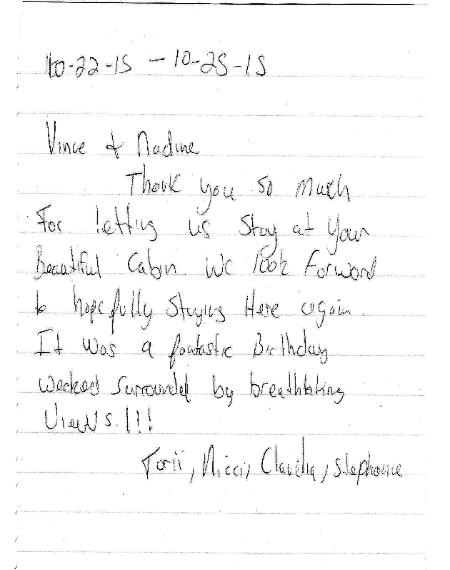 10-22-15 - 10-25-15
Vince & Nadine
Thank you so much
For letting us Stay at Your
Beautiful Cabin. We look Forward
to hopefully Staying Here again.
It was a fantastic Birthday
weekend surrounded by breathtaking
Views!!!
Torii, Nicci, Claudia, Stephanie